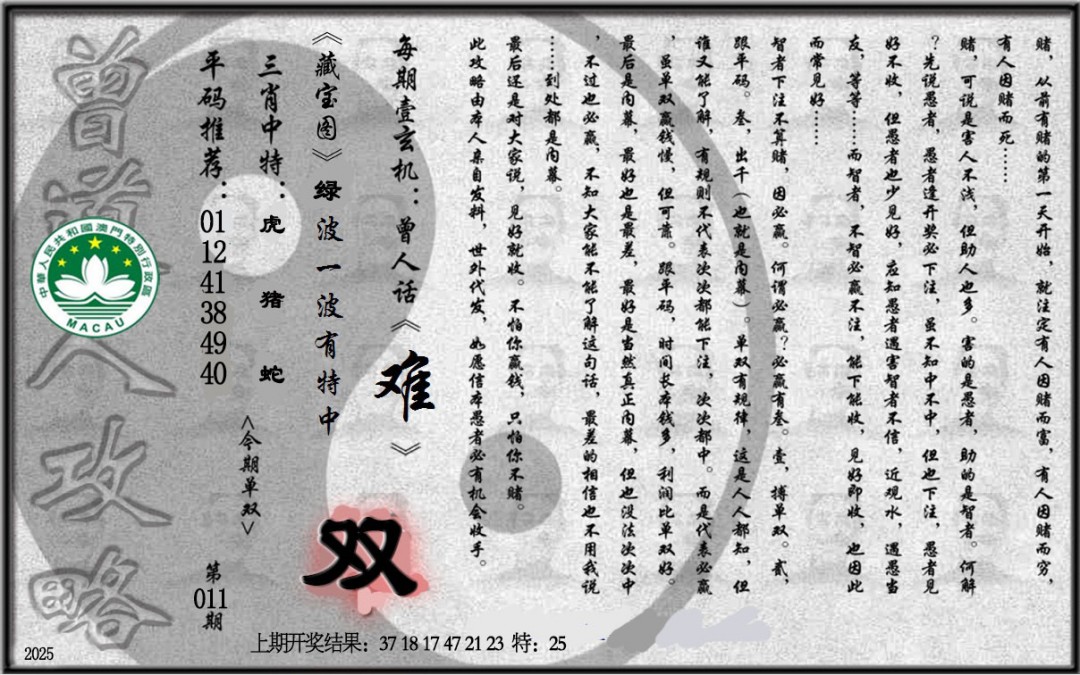 赌，从前有赌的第一天开始，就注定有人因赌而富，有人因赌而穷，
有人因赌而死……
赌，可说是害人不浅，但助人也多。害的是愚者，助的是智者。何解
？先说愚者，愚者逢开奖必下注，虽不知中不中，但也下注，愚者见
好不收，但愚者也少见好，应知愚者遇害智者不信，近观水，遇愚当
友，等等……而智者，不智必赢不注，能下能收，见好即收，也因此
而常见好……
智者下注不算赌，因必赢。何谓必赢？必赢有叁。壹，搏单双。贰，
跟平码。叁，出千（也就是内幕）。单双有规律，这是人人都知，但
谁又能了解，有规则不代表次次都能下注，次次都中。而是代表必赢
，虽单双赢钱慢，但可靠。跟平码，时间长本钱多，利润比单双好。
最后是内幕，最好也是最差，最好是当然真正内幕，但也没法次次中
，不过也必赢，不知大家能不能了解这句话，最差的相信也不用我说
……到处都是内幕。
最后还是对大家说，见好就收。不怕你赢钱，只怕你不赌。
此攻略由本人亲自发料，世外代发，如愿信本愚者必有机会收手。
每期壹玄机：曾人话《难》
《藏宝图》绿波一波有特中
双
三肖中特：虎 猪 蛇
<今期单双>
平码推荐：01 12 41 38 49 40
第011期
曾道人攻略
中華人民共和國澳門特別行政區
MACAU
上期开奖结果：37 18 17 47 21 23 特：25
2025